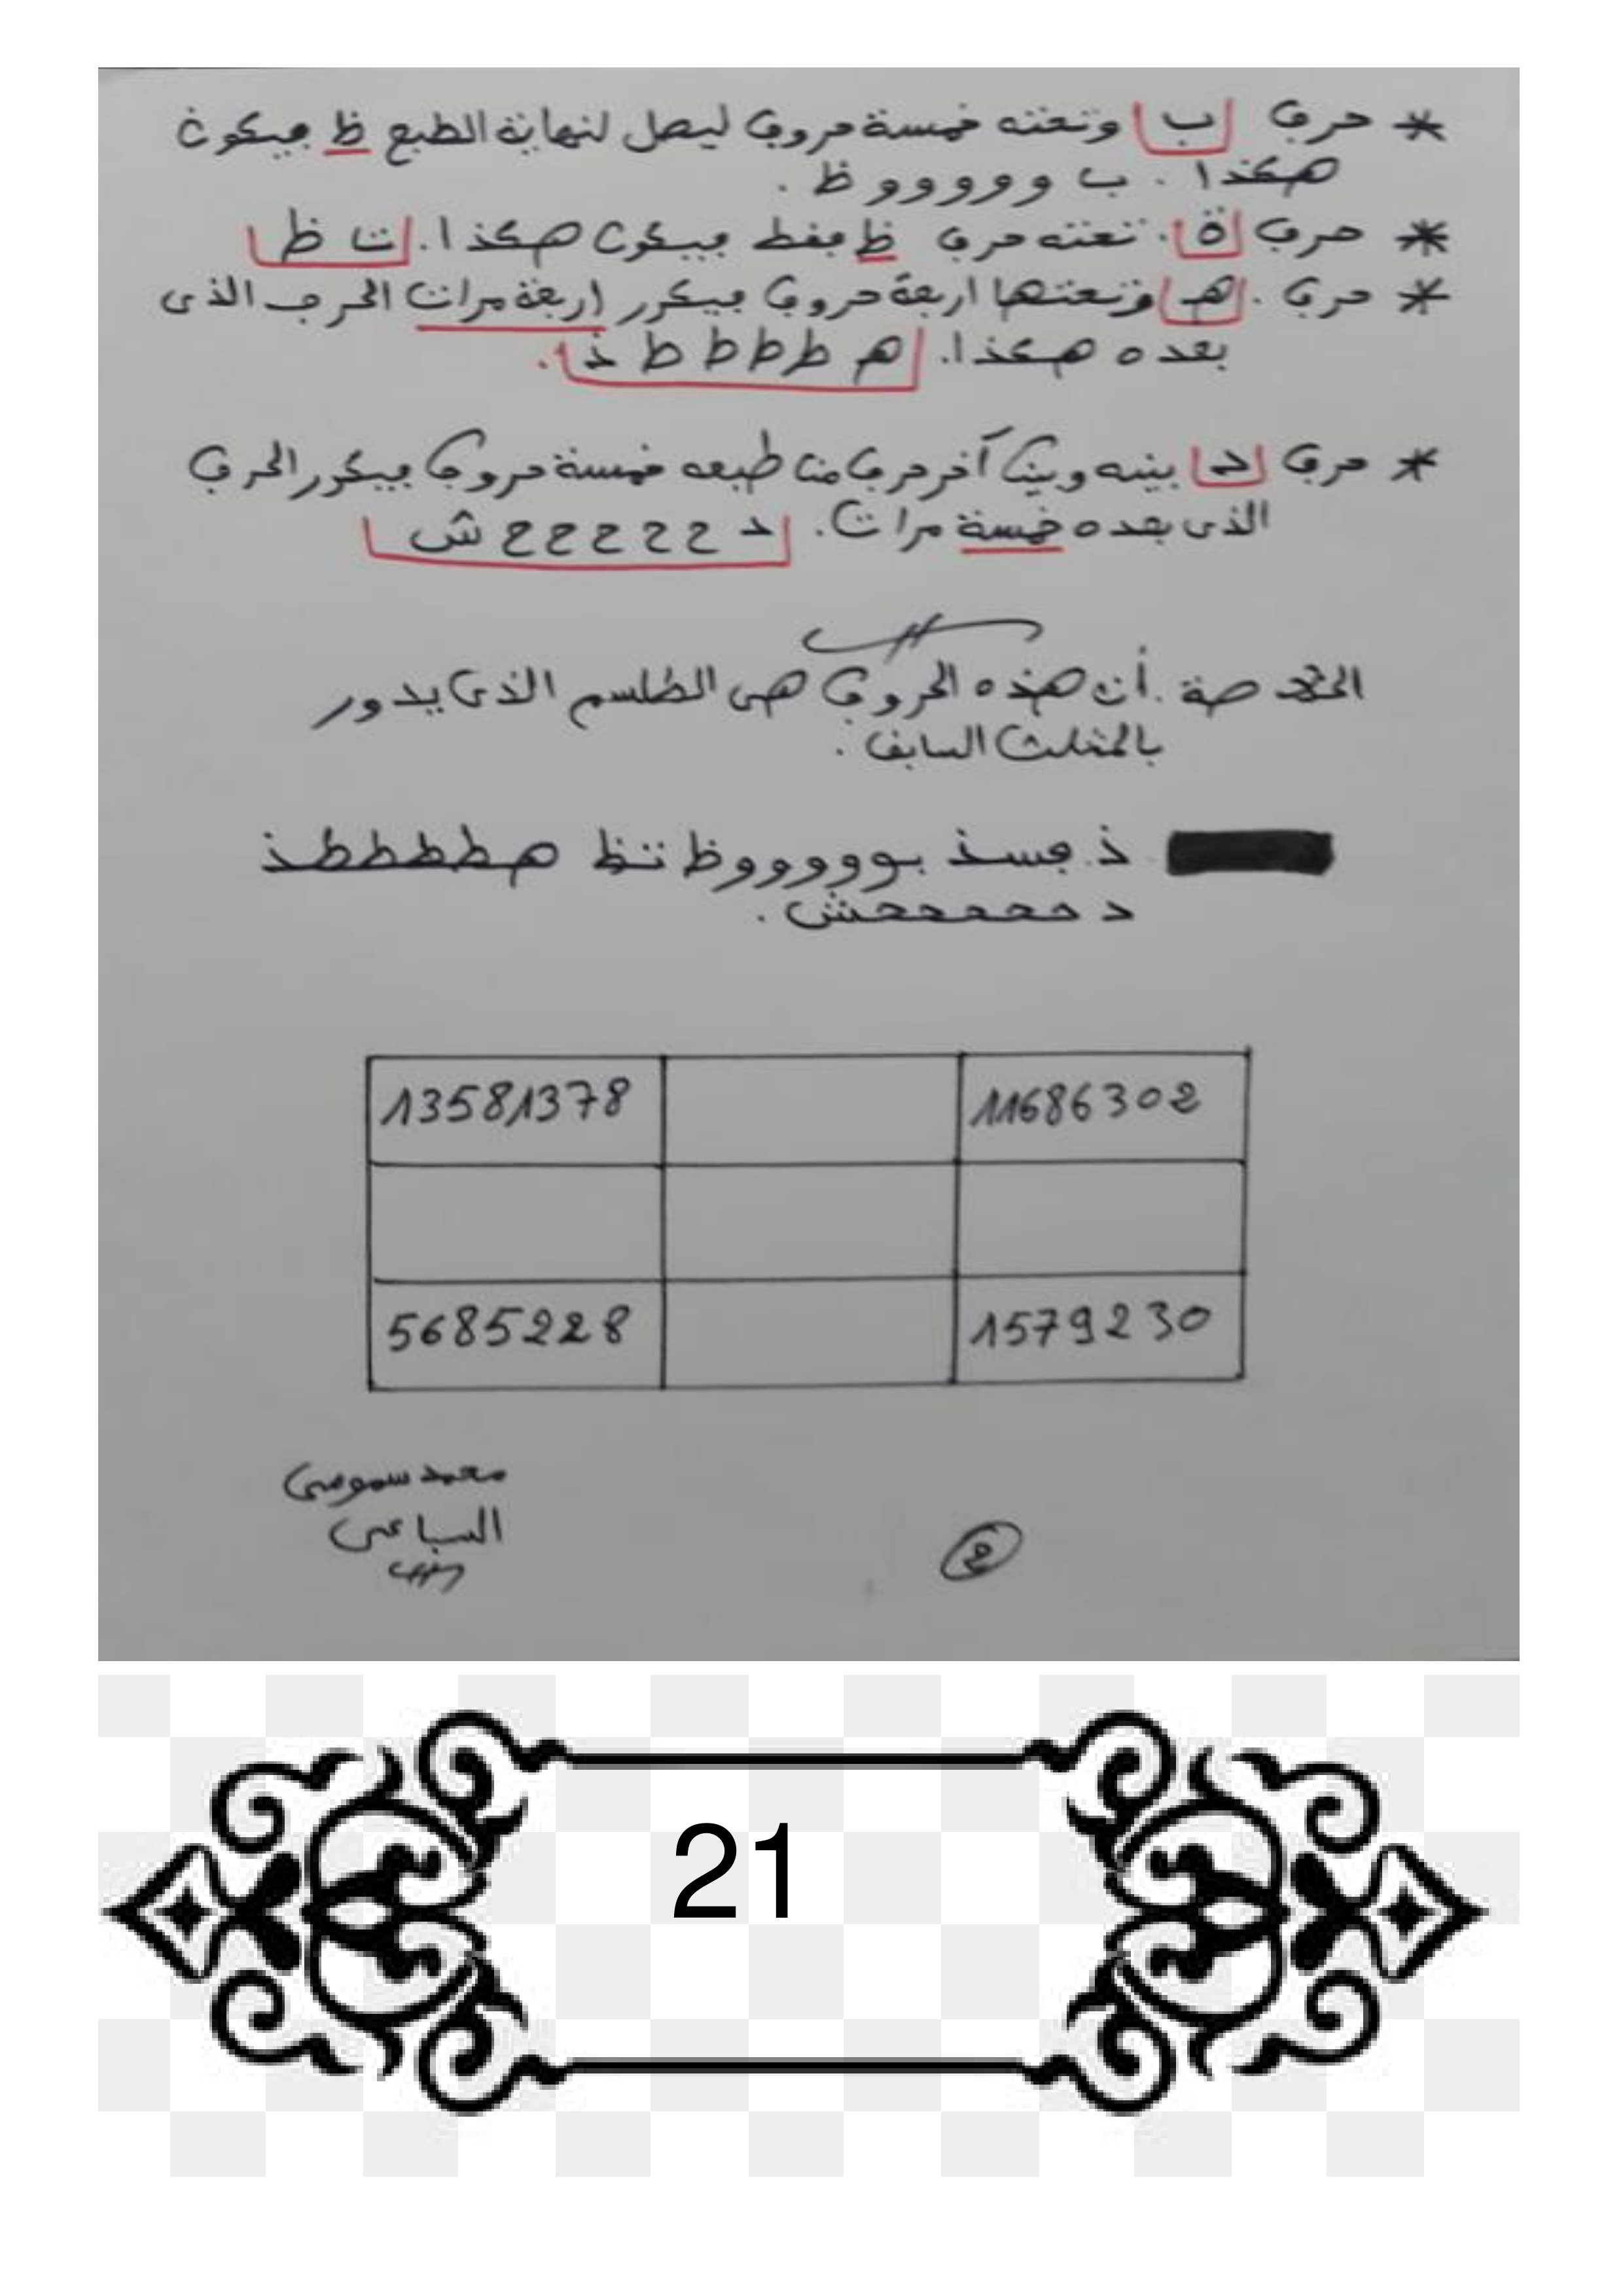 * حرف ب وتحته خمسة حروف ليصل لنهاية الطبع ظ فيكون
هكذا . ب و و و و و ظ .
* حرف ة . تحته حرف ظ فقط فيكون هكذا . ت ظ
* حرف . هـ وتحتها اربعة حروف فيكرر اربعة مرات الحرف الذى
بعده هكذا . هـ ط ط ط ط ذ .
* حرف د بينه وبين آخر حرف من طبعه خمسة حروف فيكرر الحرف
الذى بعده خمسة مرات . د ح ح ح ح ح ش
الخلاصة . أن هذه الحروف هى الطلسم الذى يدور
بالمثلث السابق .
ذ . فسذ بوووووظ تظ هططططذ
د حححححش .
13581378 11686302
5685228 1579230
محمد سمومى
السباعى
2
21